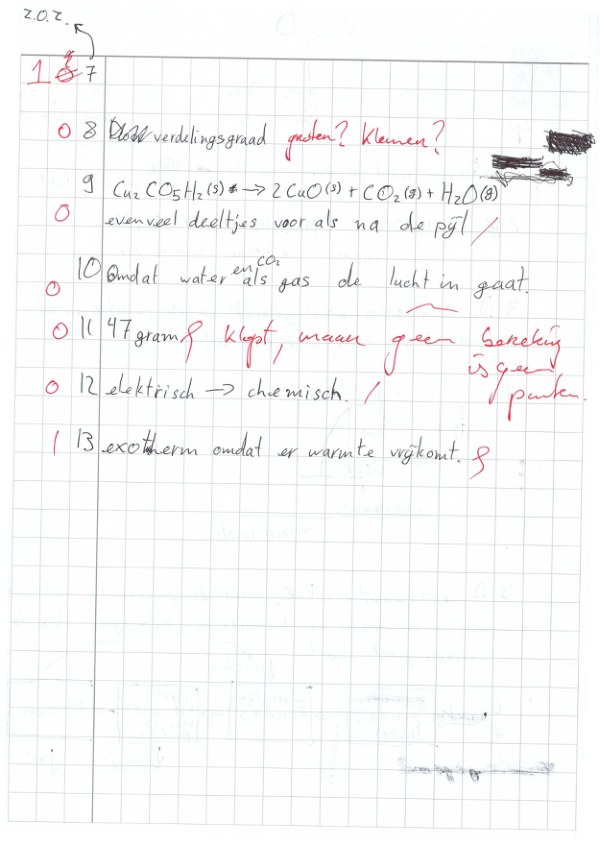 z.o.z.
1 7
0 8 verdelingsgraad groten? kleinen?
9 Cu2CO5H2(s) → 2 CuO(s) + CO2(g) + H2O(g)
0 evenveel deeltjes voor als na de pijl
en CO2
0 10 Omdat water als gas de lucht in gaat.
0 11 47 gram klopt, maar geen berekening
is geen
punten.
0 12 elektrisch → chemisch.
1 13 exotherm omdat er warmte vrijkomt.